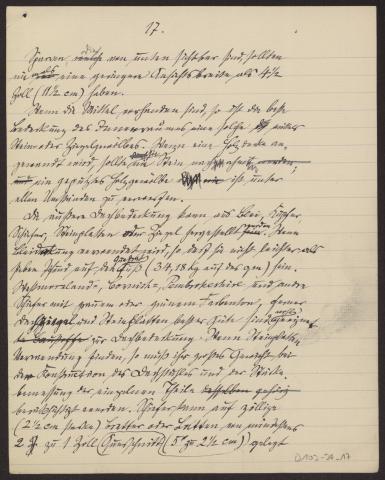 17.
Sparren, die von unten sichtbar sind, sollten
nie eine geringere Ansichtsbreite als 4½
Zoll (11½ cm) haben.
Wenn die Mittel vorhanden sind, so ist die beste
Bedeckung des Innenraumes eine solche mittels
Stein oder Ziegelgewölbes. Wenn eine Holzdecke an-
gewendet wird, sollte Stein nach
und ein geputztes Holzgewölbe ist unter
allen Umständen zu verwerfen.
Die äußere Dachbedeckung kann aus Blei, Kupfer
Schiefer, Steinplatten oder Ziegel hergestellt Wenn
Bleideckung verwendet wird, so darf sie nicht leichter als
sieben Pfund auf den Quadrat Fuß (34,18 kg auf das qm) sein.
Westmoreland, Cornische, Pembrokeshire und andre
Schiefer mit grauem oder grünem Farbenton, ferner
Dachziegel und Steinplatten bester Güte sind
zur Dachbedeckung. Wenn Steinplatten
Verwendung finden, so muß ihr großes Gewicht bei
der Konstruktion des Dachstuhles und der Stärke-
bemessung der einzelnen Theile gehörig
berücksichtigt werden. Schiefer kann auf zöllige
(2½ cm starke) Bretter oder Latten, von mindestens
2 Z. zu 1 Zoll Querschnitt (5 zu 2½ cm) gelegt
D102-24_17